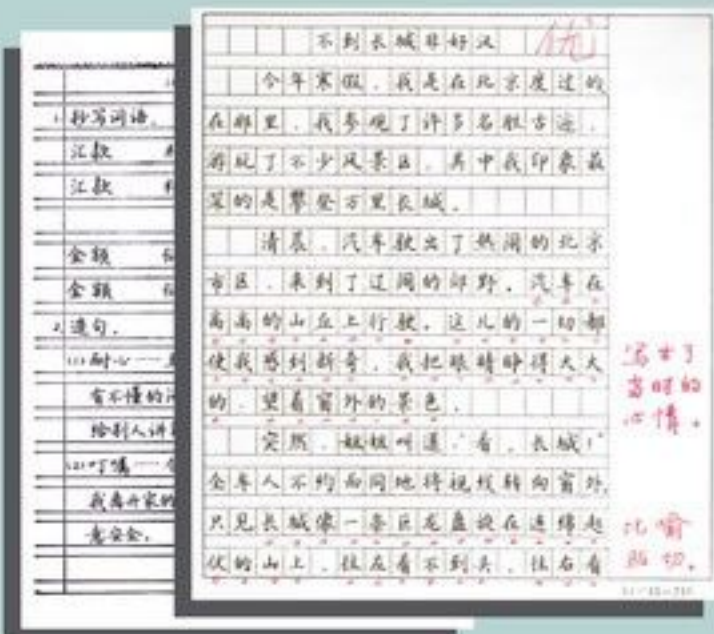 1. 抄写词语。
汇款
汇款
金额
金额
2. 造句。
(1)耐心——
有不懂的
给别人讲
(2)叮嘱——
我离开家的
意安全。
不到长城非好汉
优
今年寒假，我是在北京度过的
在那里，我参观了许多名胜古迹，
游玩了不少风景区，其中我印象最
深的是攀登万里长城。
清晨，汽车驶出了热闹的北京
市区，来到了辽阔的郊野。汽车在
高高的山丘上行驶。这儿的一切都
使我感到新奇，我把眼睛睁得大大
的，望着窗外的景色。
突然，姐姐叫道：“看，长城！”
全车人不约而同地将视线转向窗外，
只见长城像一条巨龙盘旋在连绵起
伏的山上，往左看不到头，往右看
写出了
当时的
心情。
比喻
贴切。